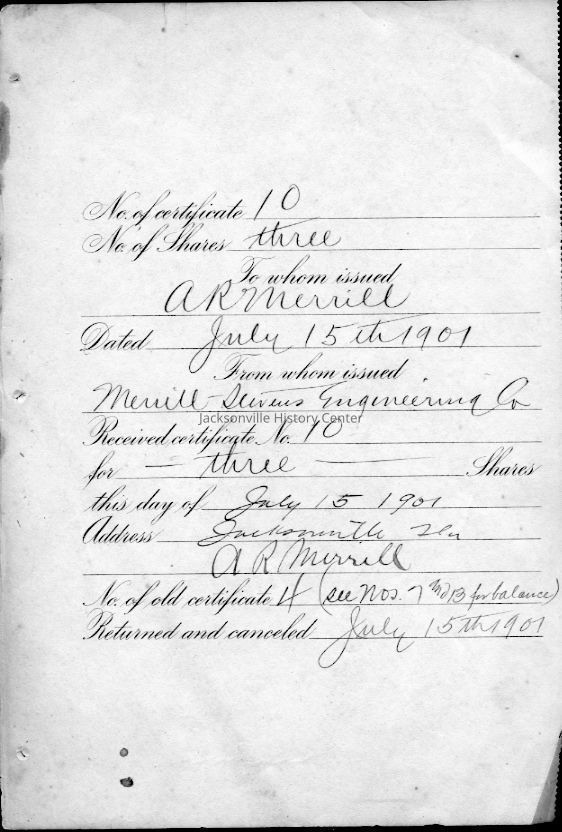 No. of certificate 10
No. of Shares three
To whom issued
A R Merrill
Dated July 15th 1901
From whom issued
Merrill-Stevens Engineering Co
Jacksonville History Center
Received certificate No. 10
for — three — Shares
this day of July 15 1901
Address Jacksonville Fla
A R Merrill
No. of old certificate 4 (see Nos. 7 and 13 for balance)
Returned and canceled July 15th 1901